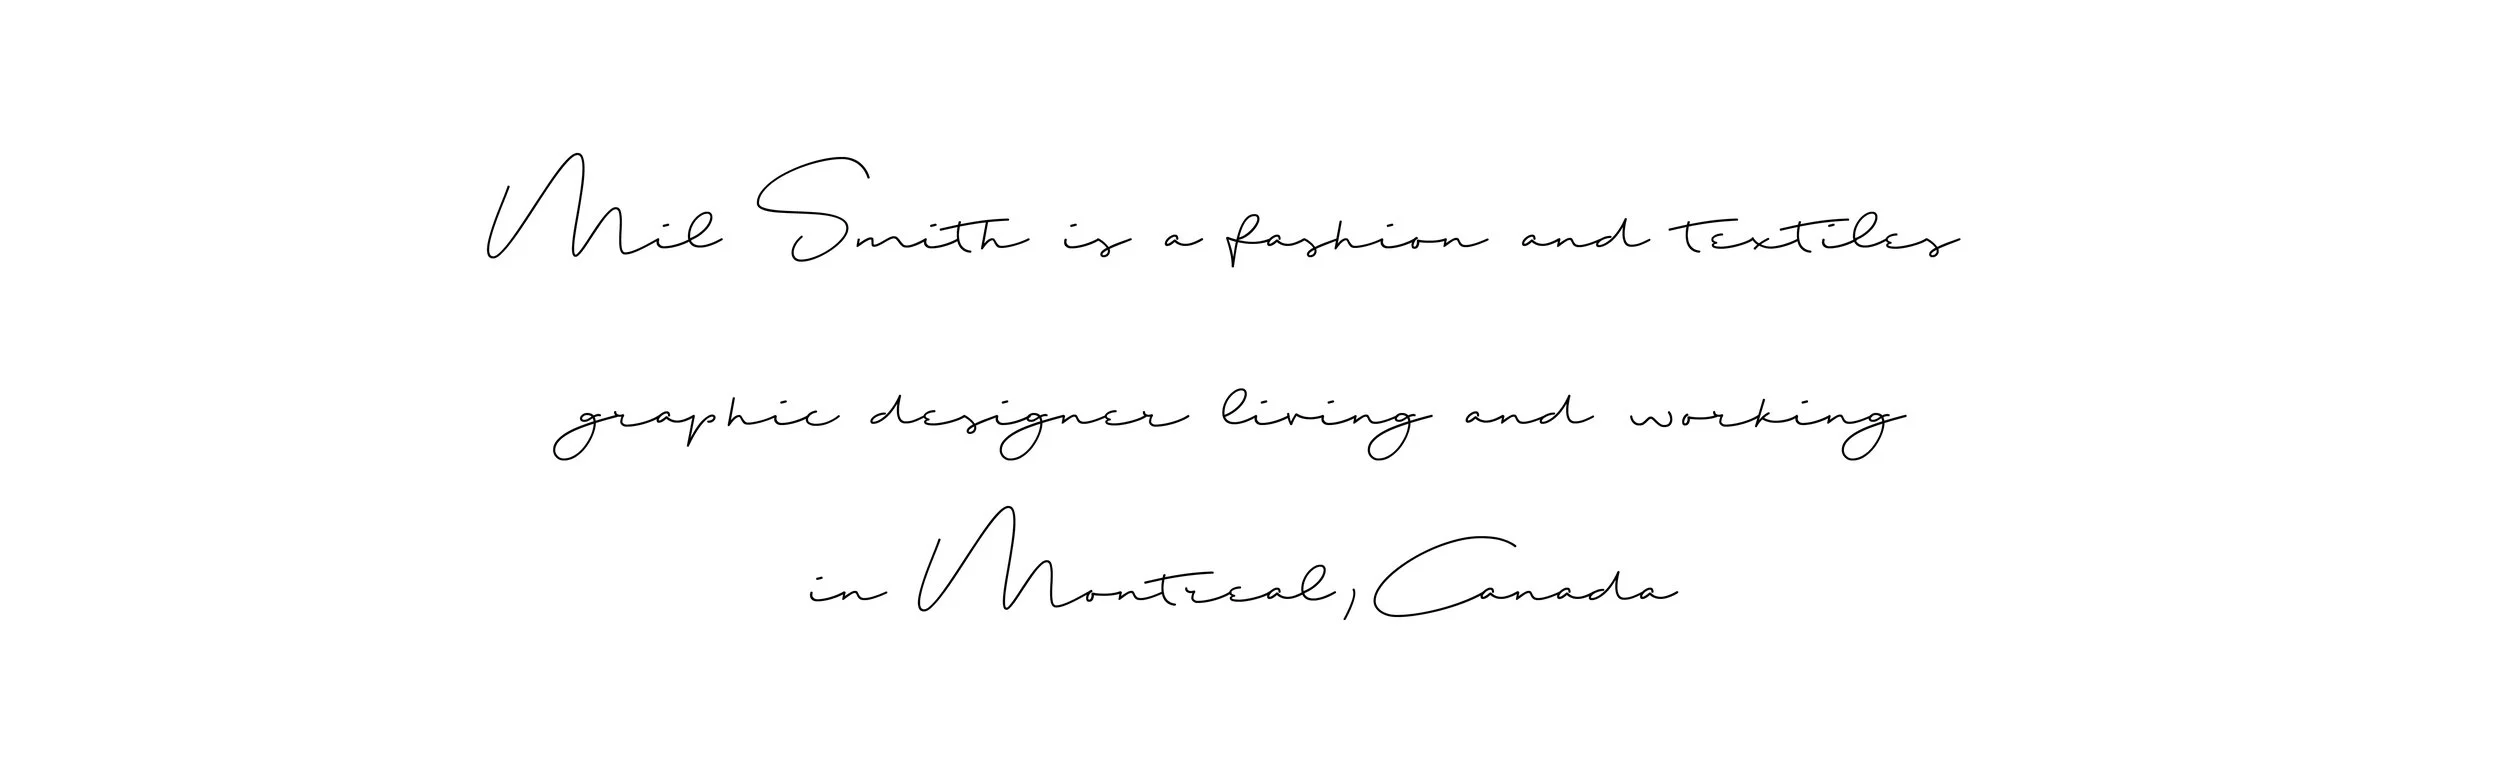 Mil Smith is a fashion and textiles
graphic designer living and working
in Montreal, Canada